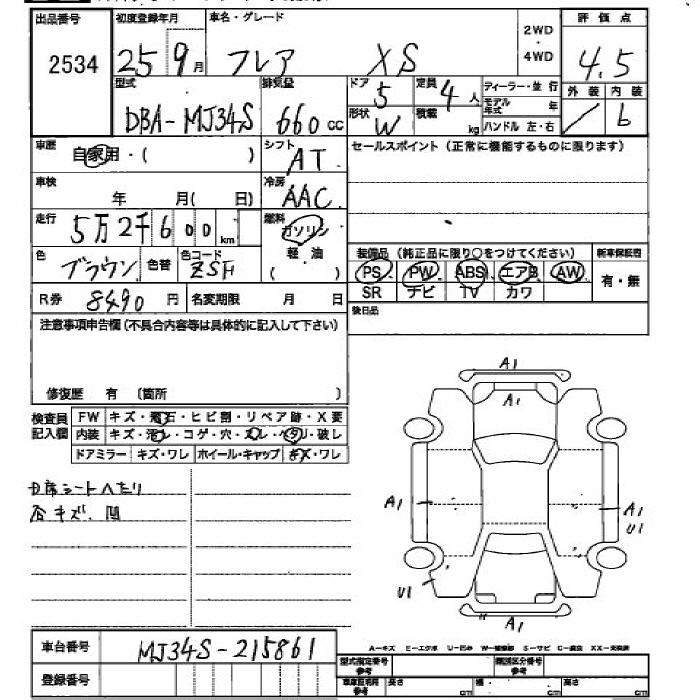 出品番号 初度登録年月 車名・グレード 2WD 評価点
2534 25 9月 フレア XS ・ 4.5
4WD
型式 排気量 ドア 定員 ディーラー・並行 外装 内装
DBA-MJ34S 660cc 5 4人 モデル年式 年 / b
形状 積載 ハンドル 左・右
W kg
車歴 自家用・( ) シフト AT セールスポイント(正常に機能するものに限ります)
車検 年 月( 日) 冷房 AAC
走行 5万2千600km 燃料 ガソリン
色 ブラウン 色替 色コード ZSF 軽油 ( ) 装備品(純正品に限り○をつけてください) 新車保証書
PS PW ABS エアB AW 有・無
SR ナビ TV カワ
R券 8490円 名変期限 月 日 後日品
注意事項申告欄(不具合内容等は具体的に記入して下さい)
修復歴 有 〔箇所 〕
検査員記入欄 FW キズ・飛石・ヒビ割・リペア跡・X要
内装 キズ・汚レ・コゲ・穴・スレ・ヘタリ・破レ
ドアミラー キズ・ワレ ホイール・キャップ キズ・ワレ
D席シートヘたり
各キズ、凹
A1
A1
A1 A1
U1
U1
A1
車台番号 MJ34S-215861
A-キズ E-エクボ U-凹み W-補修跡 S-サビ C-腐食 XX-交換済
登録番号
型式指定番号 参考 類別区分番号 参考
車庫証明用 参考 長さ cm 幅 cm 高さ cm